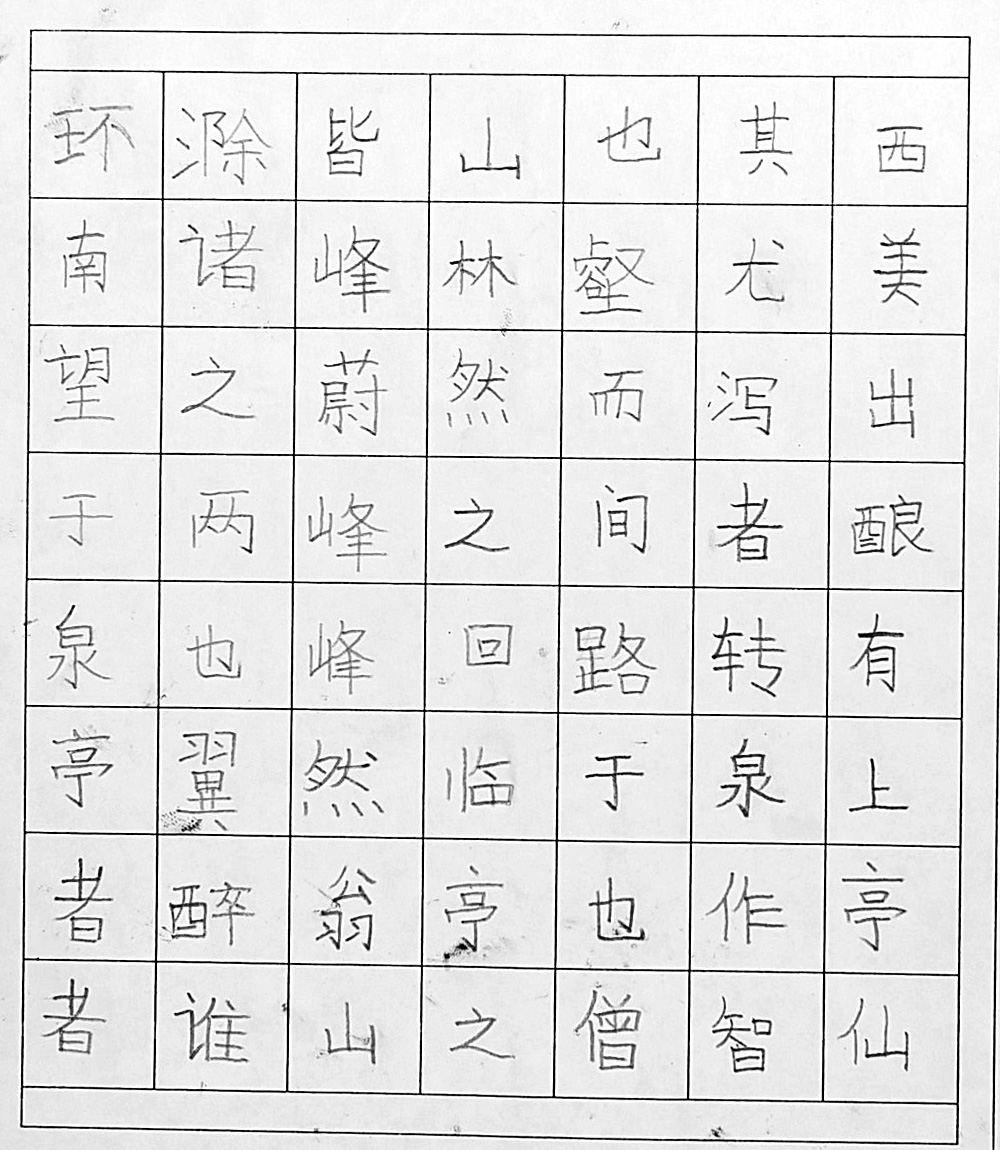 环滁皆山也其西
南诸峰林壑尤美
望之蔚然而泻出
于两峰之间者酿
泉也峰回路转有
亭翼然临于泉上
者醉翁亭也作亭
者谁山之僧智仙